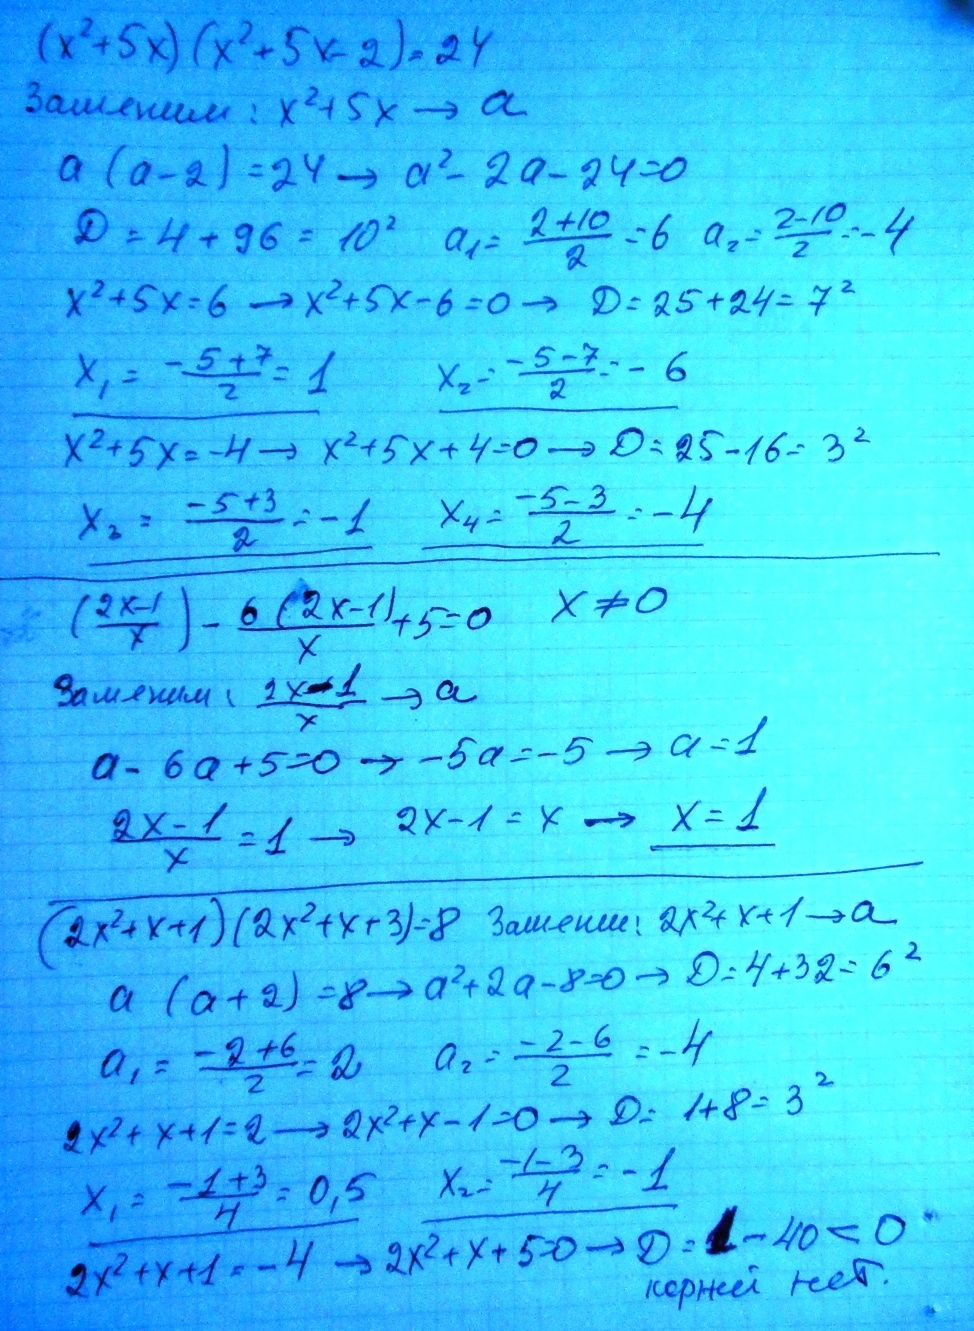 (x²+5x)(x²+5x-2)=24
Заменим: x²+5x → a
a (a-2) =24 → a²- 2a-24=0
D = 4+96 = 10² a₁= (2+10)/2 =6 a₂= (2-10)/2 =-4
x²+5x=6 → x²+5x-6=0 → D=25+24=7²
x₁= (-5+7)/2 = 1 x₂= (-5-7)/2 =- 6
x²+5x=-4 → x²+5x+4=0 → D=25-16=3²
x₃ = (-5+3)/2 =-1 x₄= (-5-3)/2 =-4
((2x-1)/x) - 6(2x-1)/x +5=0 x≠0
Заменим: (2x-1)/x → a
a- 6a+5=0 → -5a=-5 → a=1
(2x-1)/x =1 → 2x-1=x → x=1
(2x²+x+1)(2x²+x+3)=8 Заменим: 2x²+x+1→a
a (a+2) =8→a²+2a-8=0→ D=4+32=6²
a₁ = (-2+6)/2 =2 a₂= (-2-6)/2 =-4
2x²+x+1=2 → 2x²+x-1=0 → D= 1+8=3²
x₁ = (-1+3)/4 = 0,5 x₂= (-1-3)/4 =-1
2x²+x+1=-4 → 2x²+x+5=0 → D=1-40<0
корней нет.